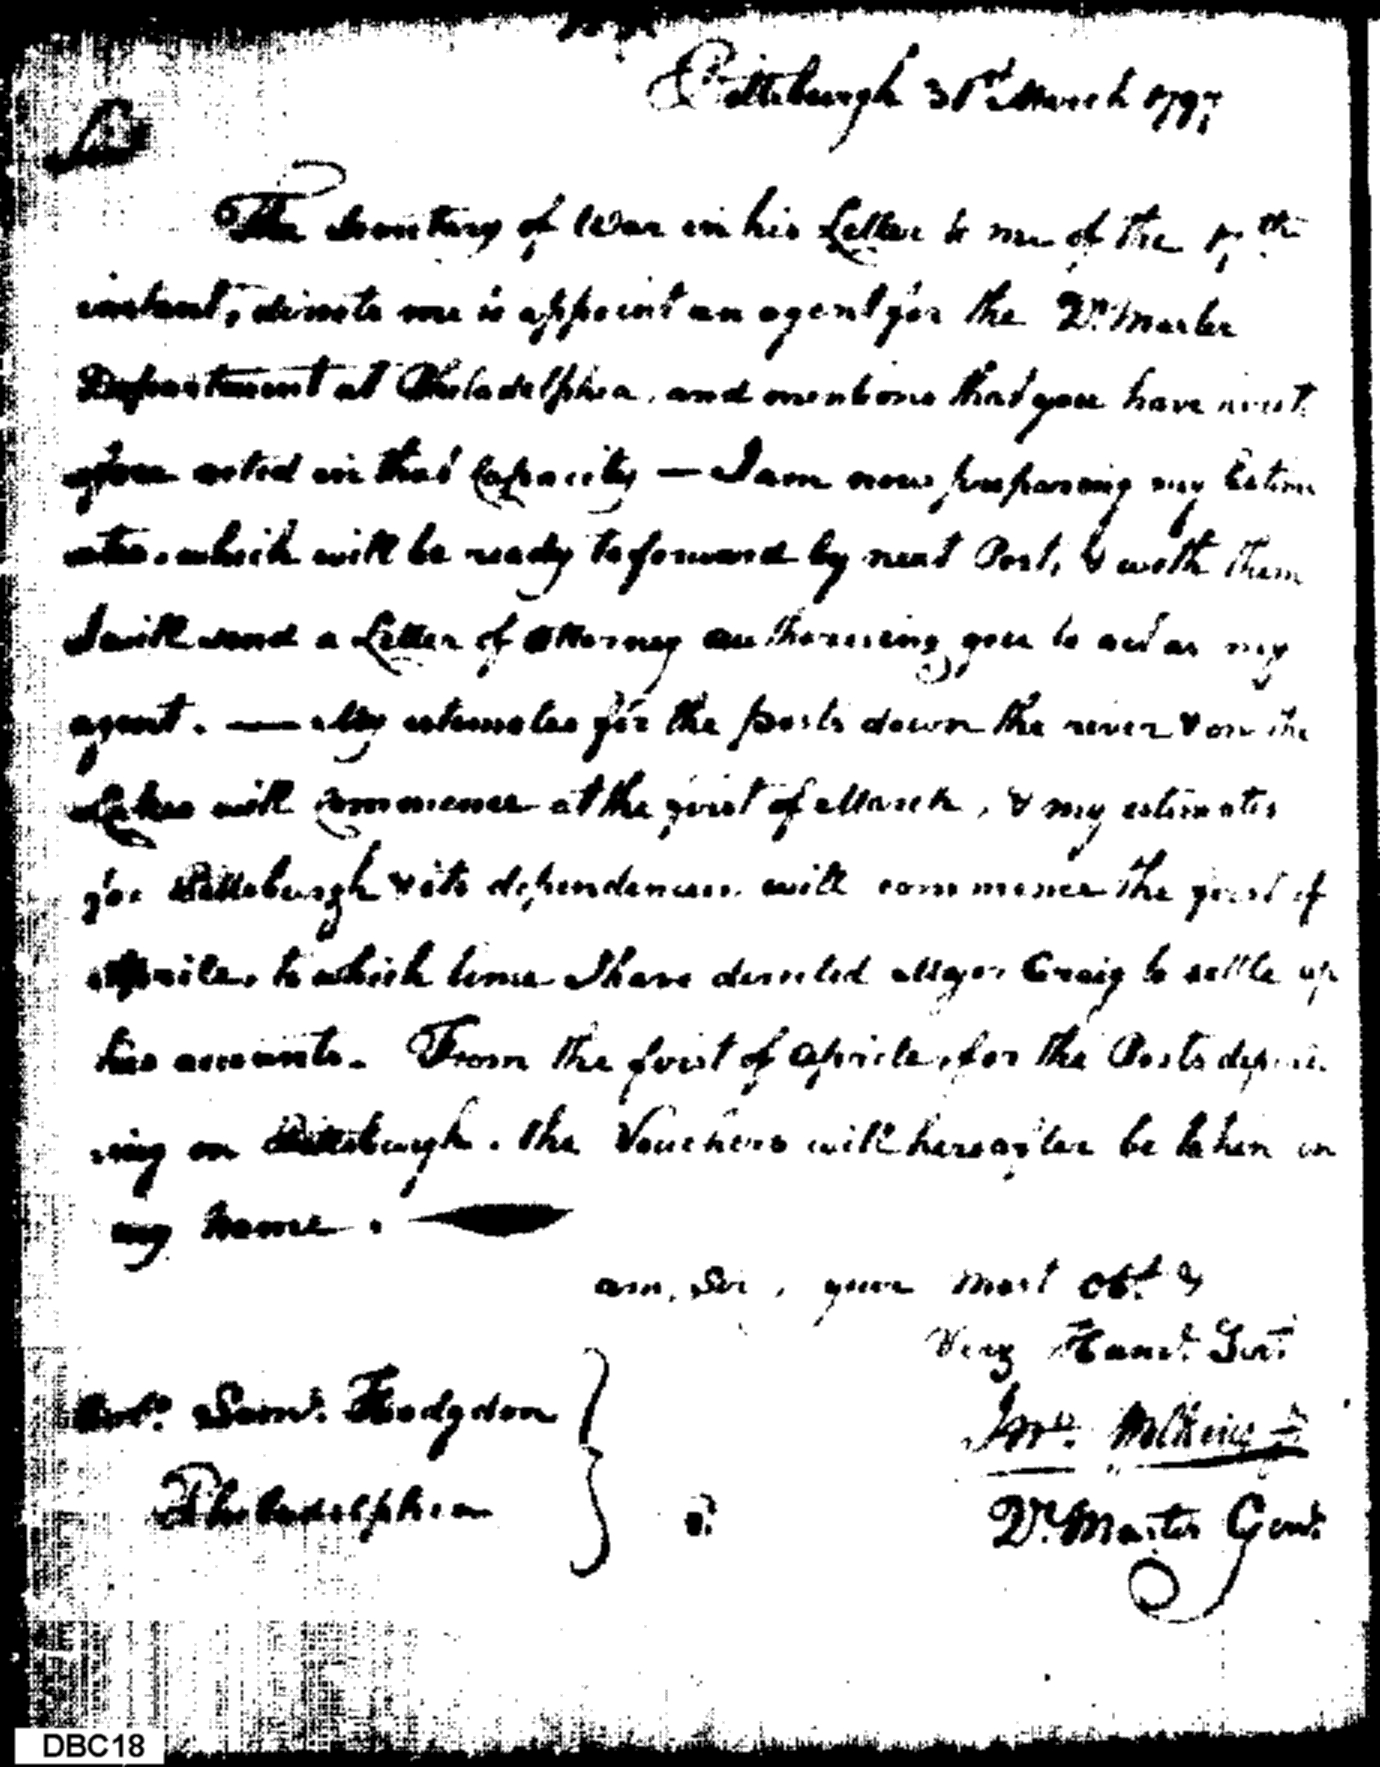 Pittsburgh 31st March 1797
Sir
The Secretary of War in his Letter to me of the 17th
instant, directs me to appoint an agent for the Qr. Master
Department at Philadelphia, and mentions that you have
acted in that Capacity — I am now preparing my Estim
ates, which will be ready to forward by next Post, & with them
I will send a Letter of Attorney authorising you to act as my
agent. — My estimates for the posts down the river & on the
Lakes will commence at the first of March, & my estimates
for Pittsburgh & its dependencies will commence the first of
Aprile, to which time I have directed Major Craig to settle up
his accounts. From the first of Aprile, for the Posts depend
ing on Pittsburgh, the Vouchers will hereafter be taken in
my name.
am, Sir, your Most Obt. &
Very Hume. Servt.
Jno. Wilkins Jr
Qr. Master Genl.
Saml. Hodgdon
Philadelphia
DBC18